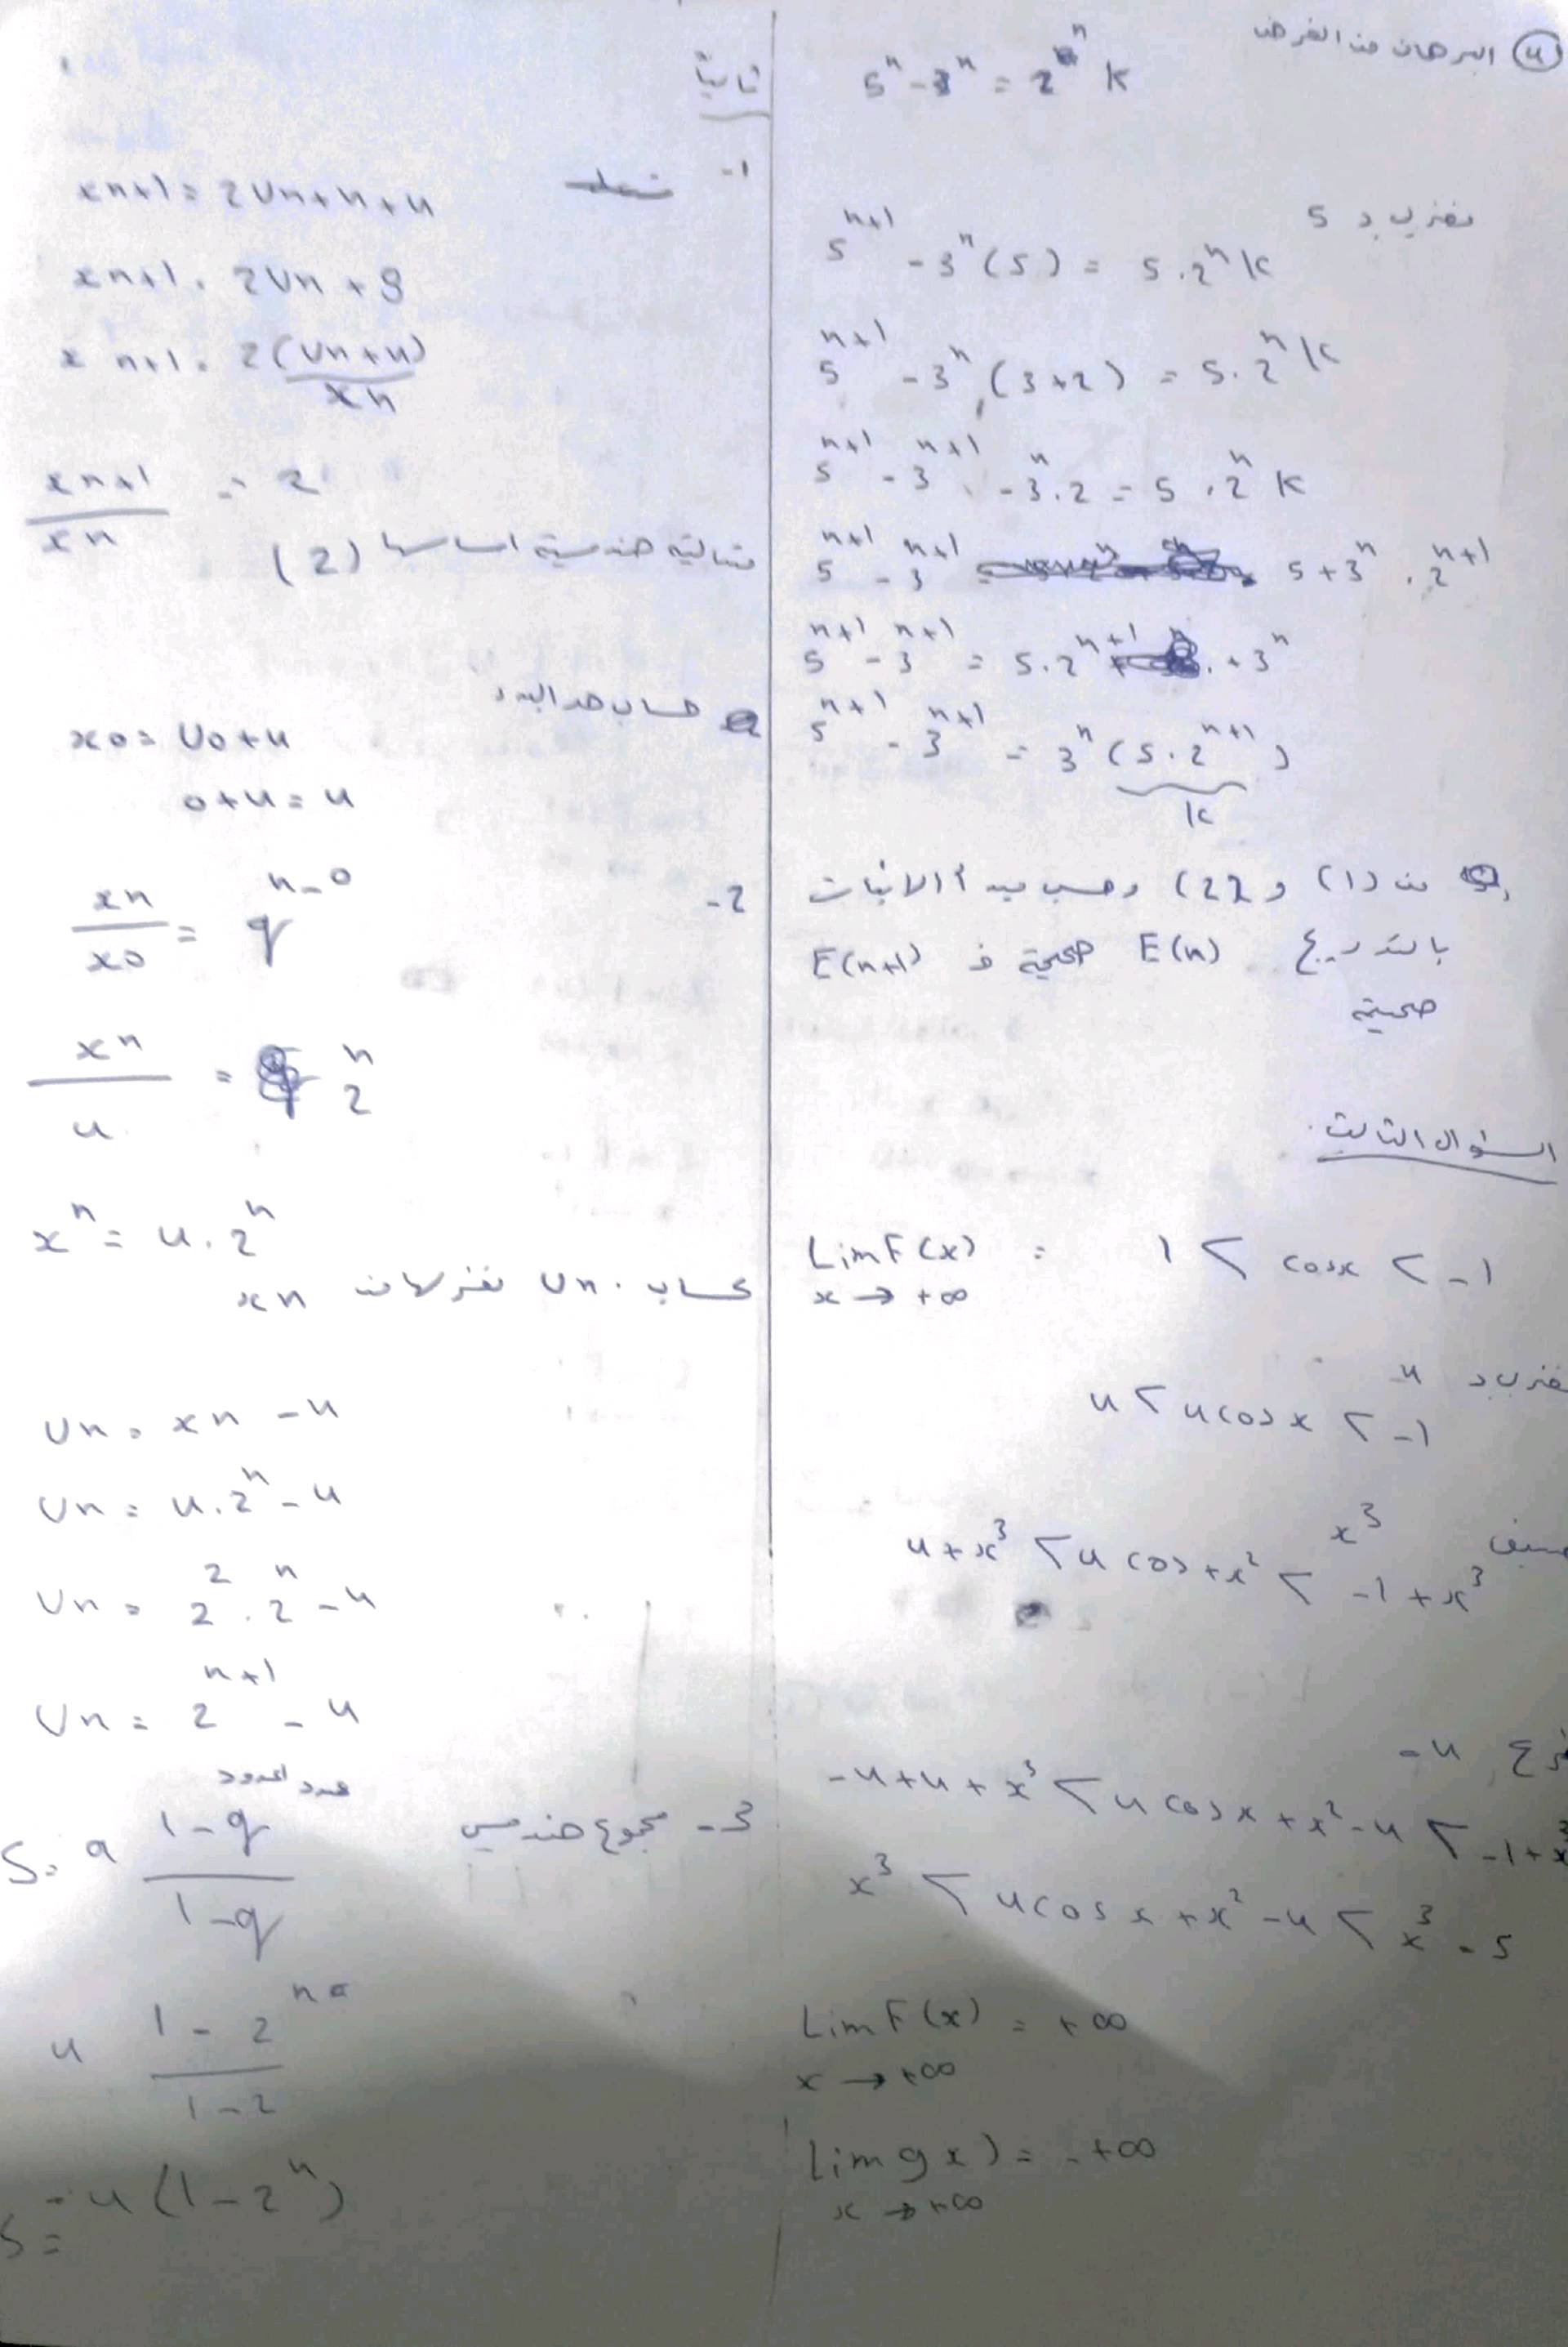 ④ البرهان من الفرض
5ⁿ - 3ⁿ = 2ⁿ K
نضرب بـ 5
5ⁿ⁺¹ - 3ⁿ(5) = 5.2ⁿ K
5ⁿ⁺¹ - 3ⁿ(3+2) = 5.2ⁿ K
5ⁿ⁺¹ - 3ⁿ⁺¹ - 3ⁿ.2 = 5.2ⁿ K
5ⁿ⁺¹ - 3ⁿ⁺¹ = 5+3ⁿ.2ⁿ⁺¹
5ⁿ⁺¹ - 3ⁿ⁺¹ = 5.2ⁿ⁺¹ . + 3ⁿ
5ⁿ⁺¹ - 3ⁿ⁺¹ = 3ⁿ(5.2ⁿ⁺¹)
K
من (1) و (2) وحسب مبدأ الاثبات
بالتدريج E(n) صحيحة فـ E(n+1)
صحيحة
السؤال الثالث
Lim F(x) : 1 < cosx < -1
x → +∞
نضرب بـ 4
4 < 4cosx < -1
x³
4+x³ < 4cos+x² < -1+x³
-4
-4+4+x³ < 4cosx+x²-4 < -1+x³
x³ < 4cosx+x²-4 < x³-5
Lim F(x) = +∞
x → +∞
Lim g x) = -+∞
x → +∞
ثانياً
1-
xn+1 = 2Un+4+4
xn+1 = 2Un+8
xn+1 = 2(Un+4)
xn
xn+1 / xn = 2
متتالية هندسية اساسها (2)
حساب حد البدء
x0 = U0+4
0+4=4
2-
xn / x0 = qⁿ⁻⁰
xⁿ / 4 = 2ⁿ
xⁿ = 4.2ⁿ
حساب Un. من xn
Un = xn -4
Un = 4.2ⁿ -4
Un = 2².2ⁿ -4
Un = 2ⁿ⁺¹ -4
3- مجموع هندسي
عدد الحدود
S = a (1-q) / (1-q)
4 (1-2ⁿ) / (1-2)
S = -4(1-2ⁿ)